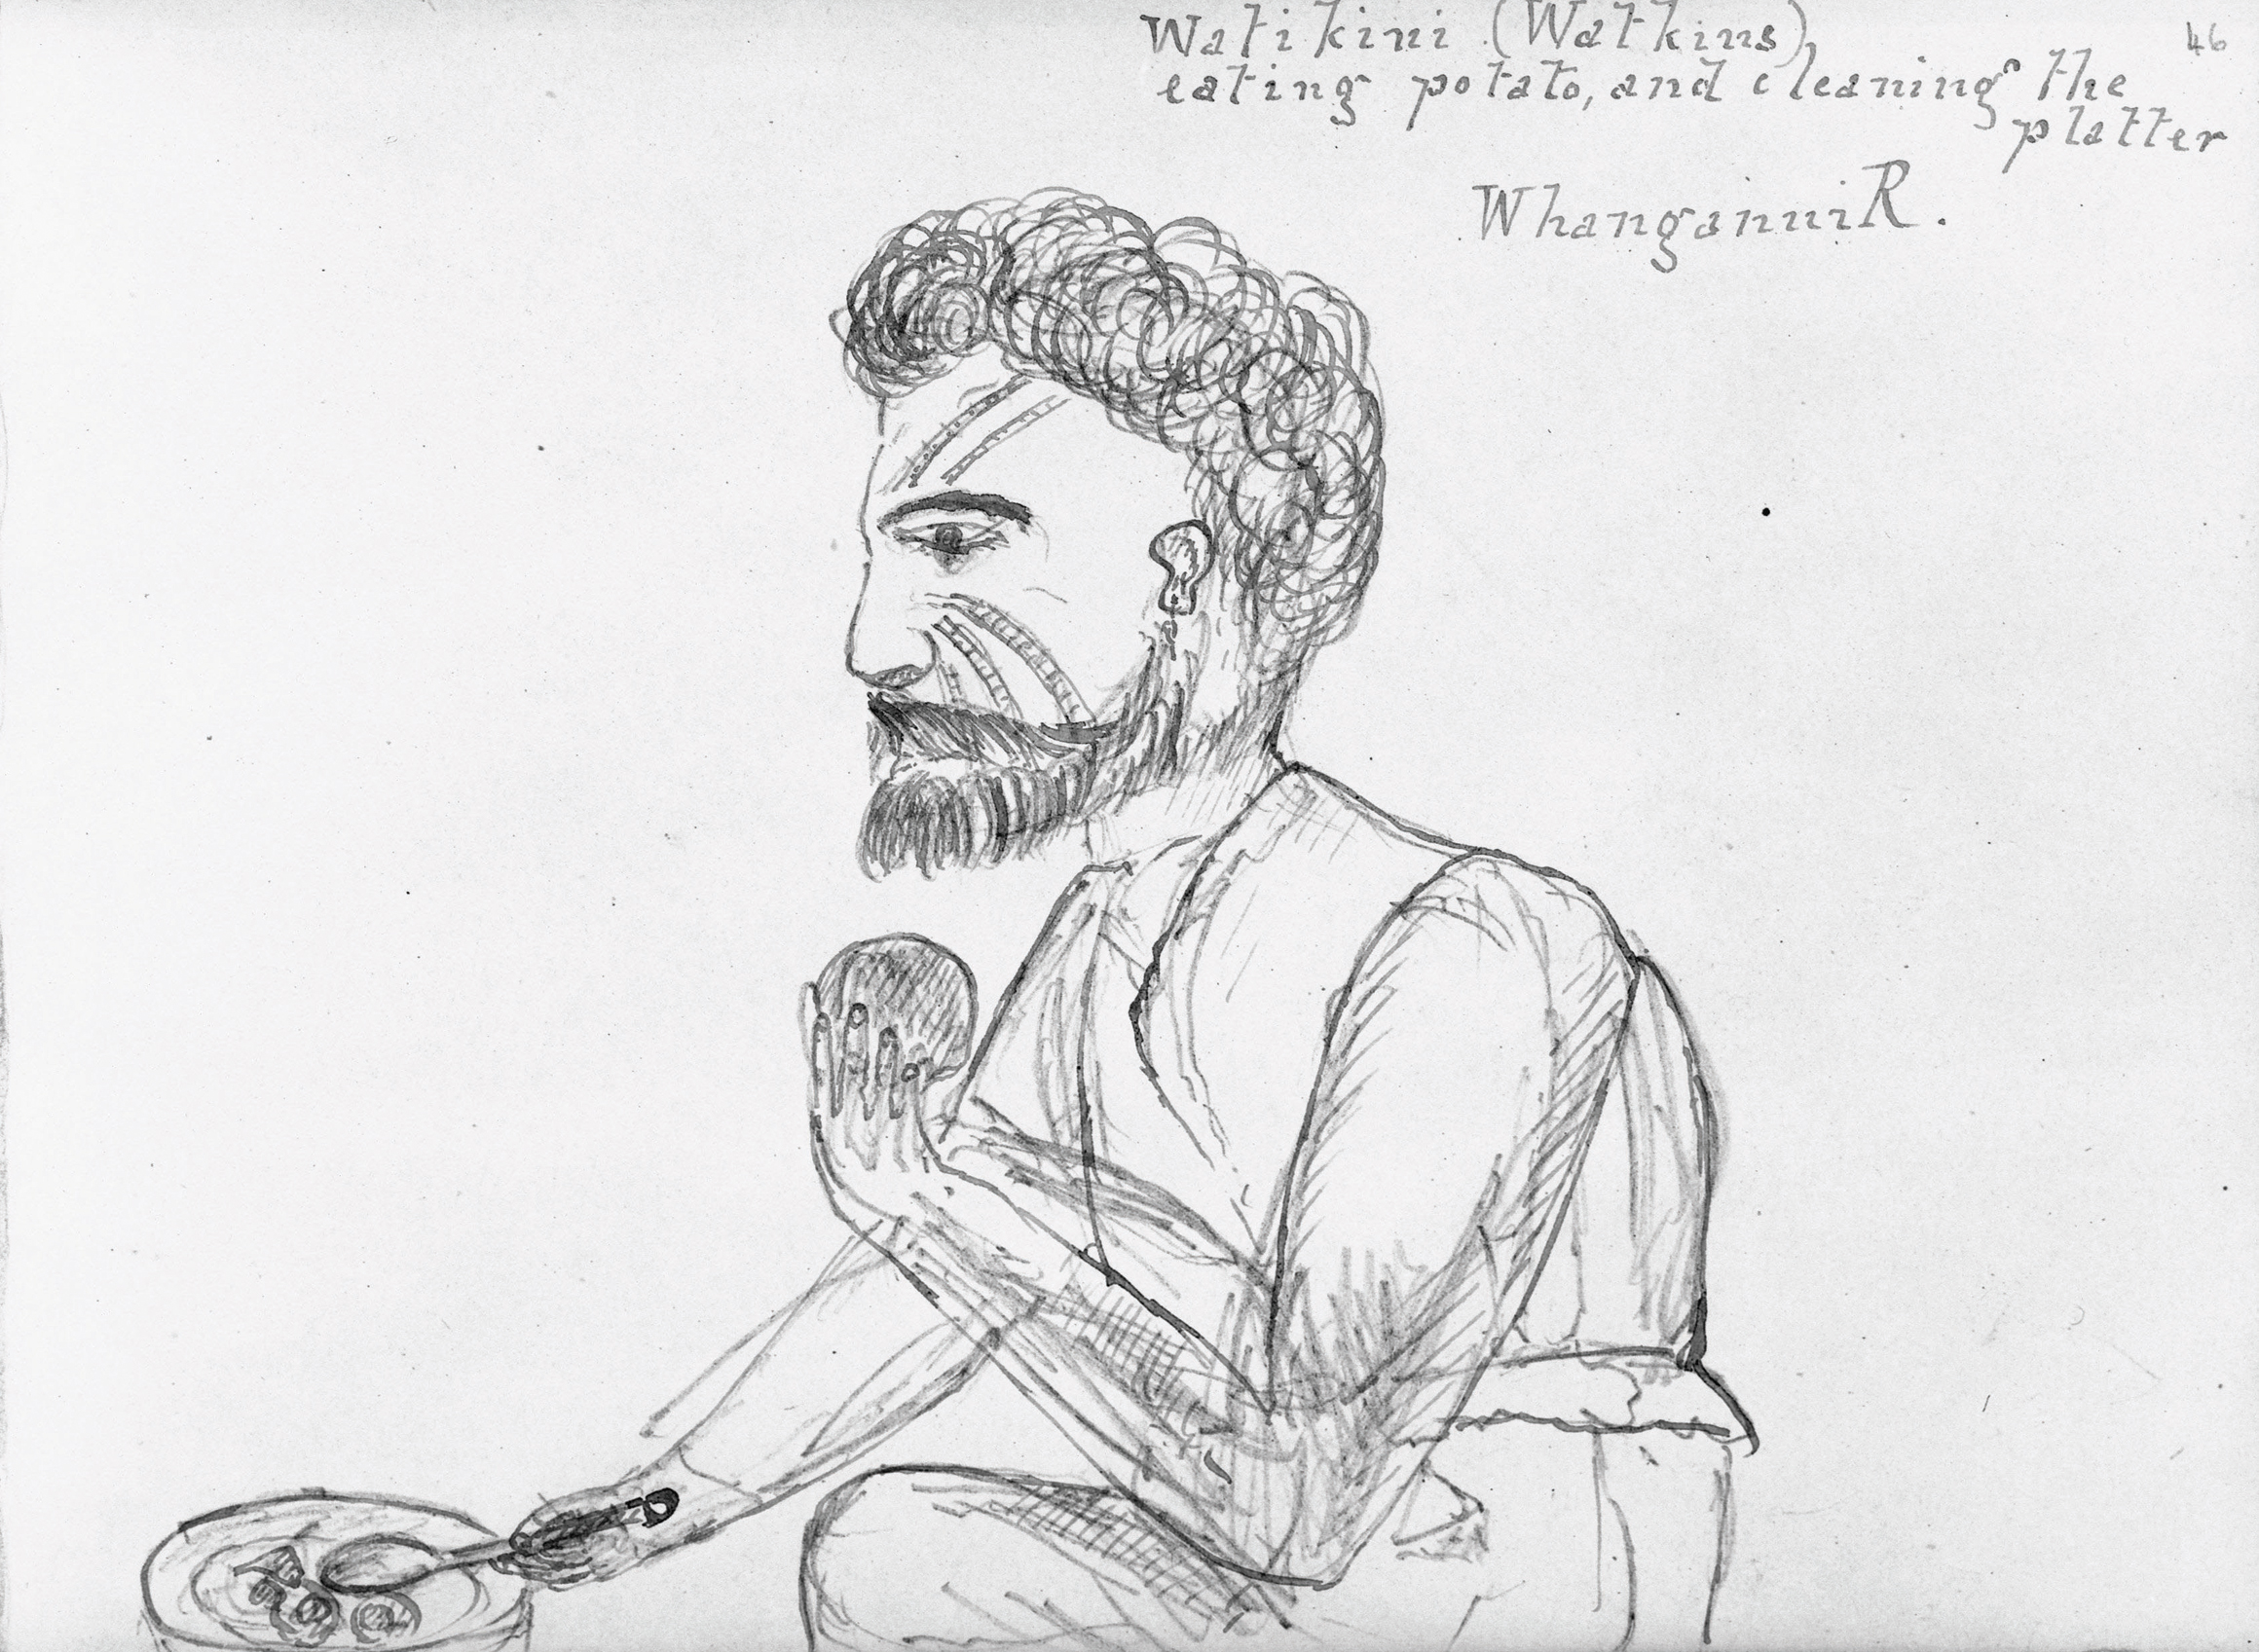 Watikini (Watkins),
46
eating potato, and cleaning the
platter
Whanganui R.